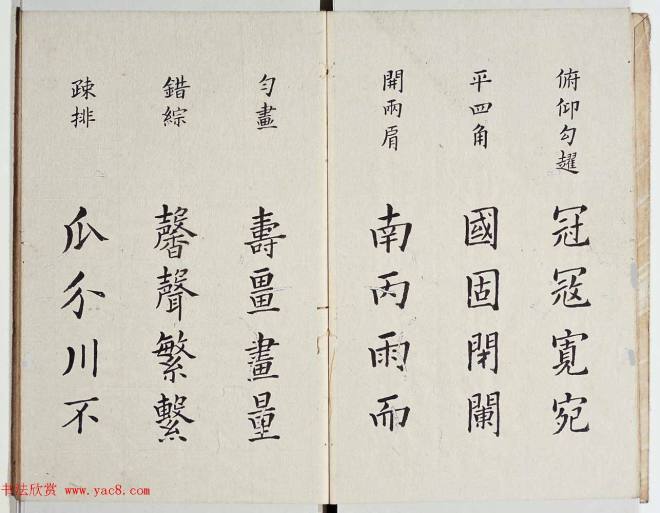 俯仰勾趯
冠冦寛宛
平四角
國固閉闌
開兩肩
南丙雨而
勻畫
壽畺畫量
錯綜
馨聲繁繫
疎排
瓜介川不
书法欣赏 www.yac8.com